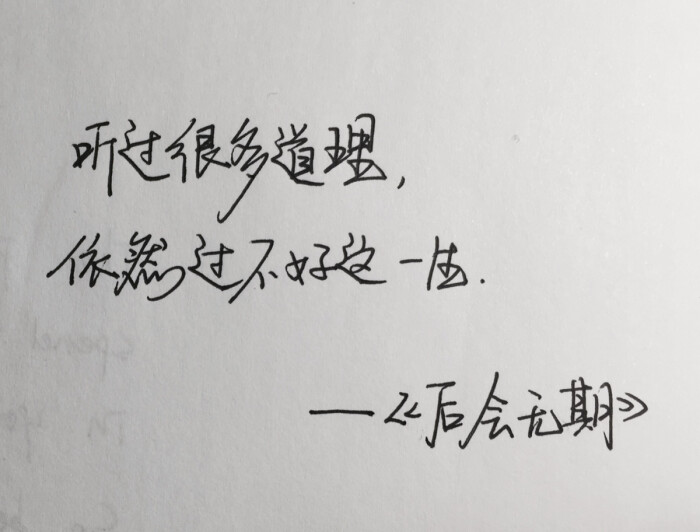 听过很多道理,
依然过不好这一生.
——《后会无期》